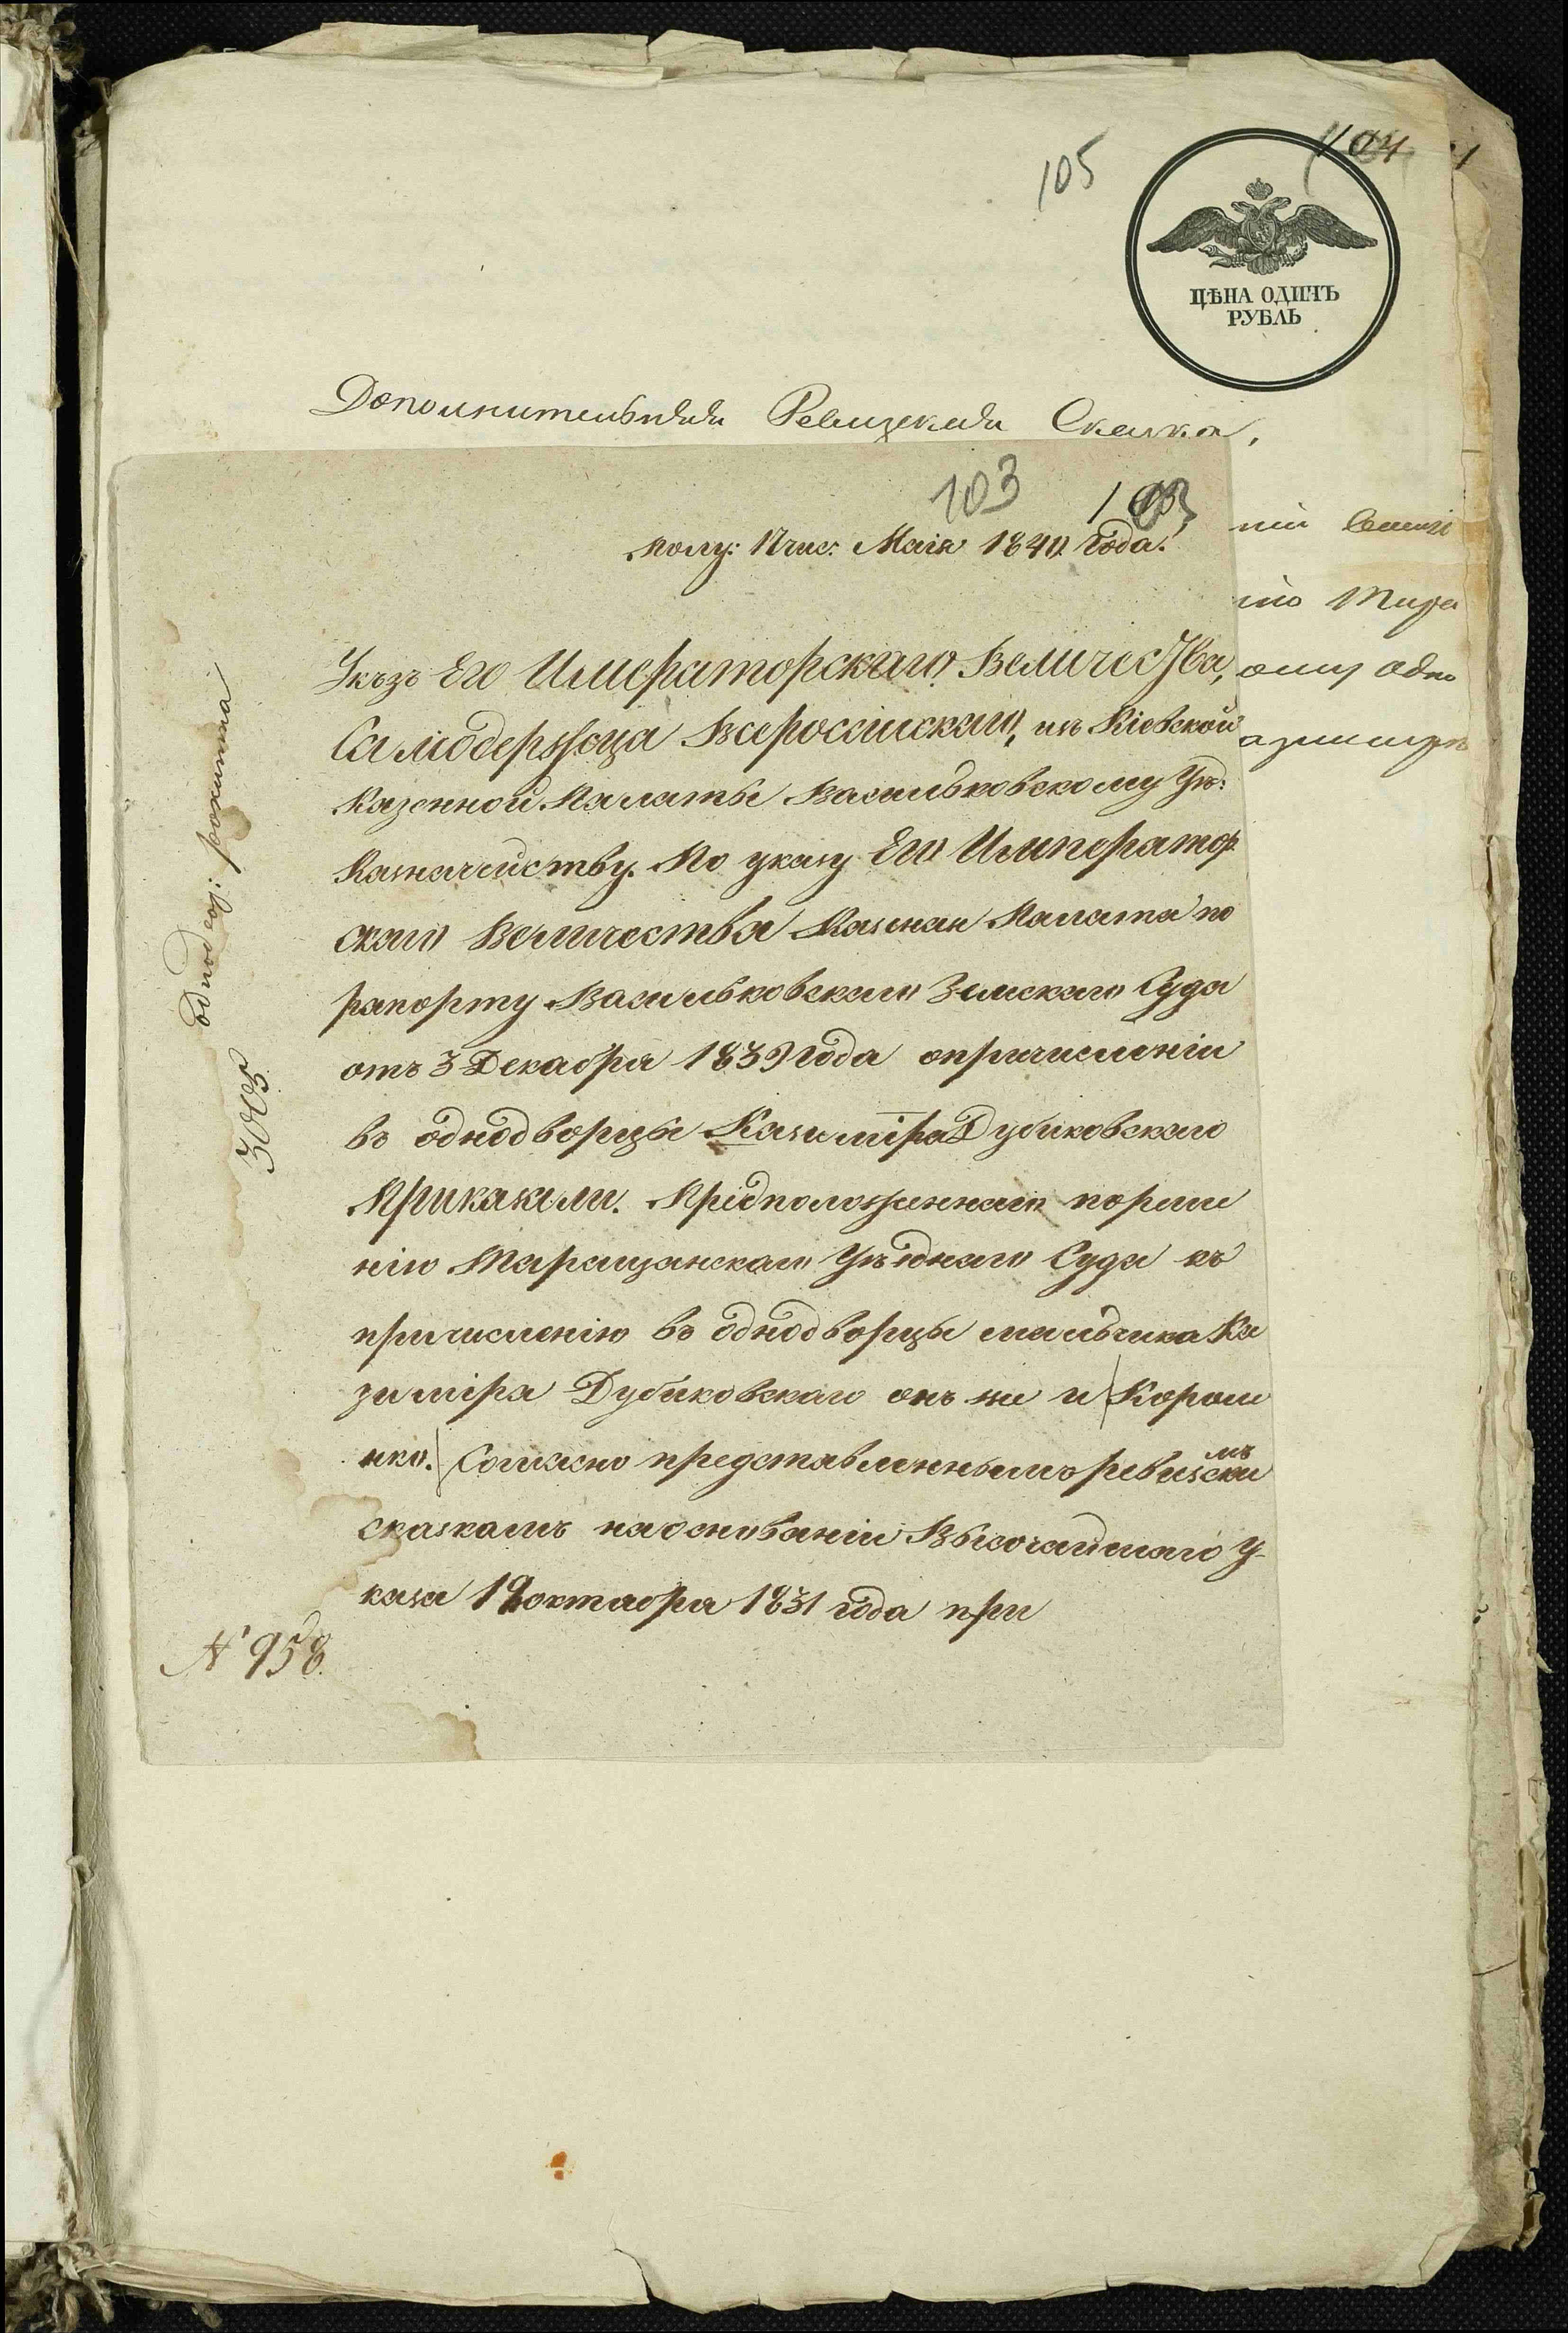 105
104
ЦѢНА ОДИНЪ
РУБЛЬ
Дополнительная Ревизская Сказка,
103 103
полу: 17 чис: Маія 1840 года.
Указъ Его Императорскаго Величества,
Самодержца Всероссійскаго, изъ Кіевской
Казенной Палаты Васильковскому Уѣ:
Казначейству. По указу Его Император
скаго Величества Казенная Палата по
рапорту Васильковскаго Земскаго Суда
отъ 3 Декабря 1839 года о причисленіи
въ однодворцы Казиміра Дубиковскаго
Приказали. Предположеннаго по реше
нію Таращанскаго Уѣзднаго Суда къ
причисленію въ однодворцы мальчика Ка
зиміра Дубиковскаго онъ же и Короле
нко. Согласно представленнымъ ревизскимъ
сказкамъ на основаніи Высочайшаго У-
каза 19 октября 1831 года при
N 958.
3005 однодвор: рокитна
ому одно